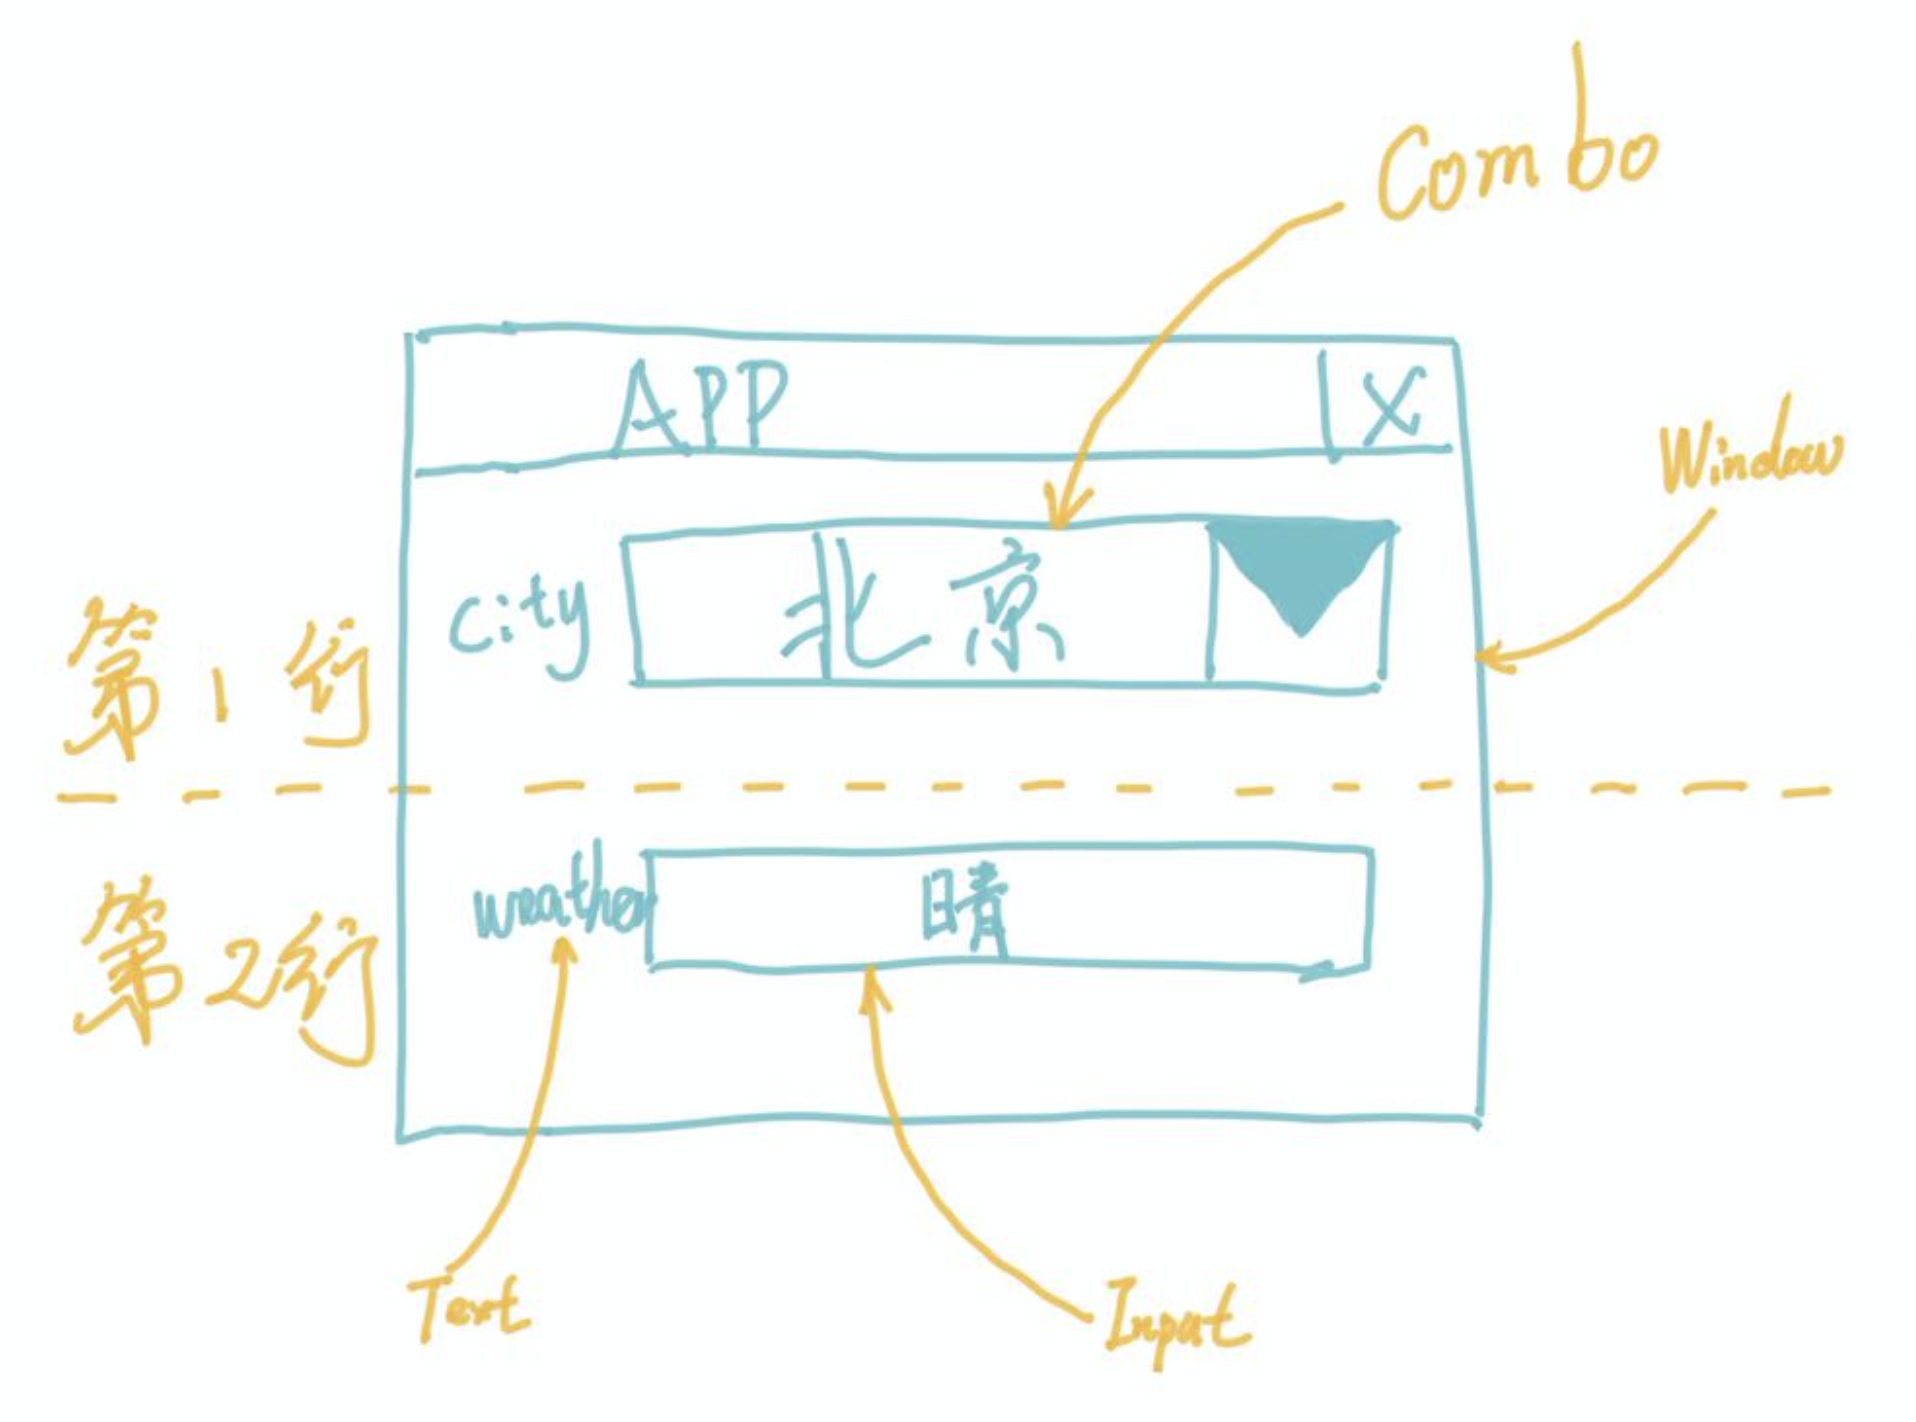 Combo
APP X
Window
第1行
city 北京
第2行
weather 晴
Text
Input